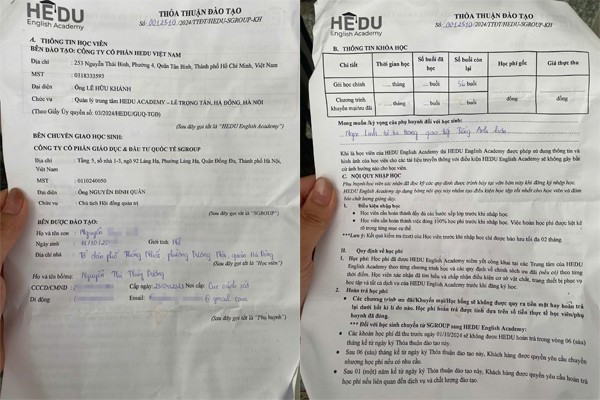 HEDU
English Academy
THỎA THUẬN ĐÀO TẠO
Số: 0012510 /2024/TTĐT/HEDU-SGROUP-KH
A. THÔNG TIN HỌC VIÊN
BÊN ĐÀO TẠO: CÔNG TY CỔ PHẦN HEDU VIỆT NAM
Địa chỉ : 253 Nguyễn Thái Bình, Phường 4, Quận Tân Bình, Thành phố Hồ Chí Minh, Việt Nam
MST : 0318333593
Đại diện : Ông LÊ HỮU KHÁNH
Chức vụ : Quản lý trung tâm HEDU ACADEMY – LÊ TRỌNG TẤN, HÀ ĐÔNG, HÀ NỘI
(Theo Giấy Ủy quyền số: 03/2024/HEDU/GUQ-TGĐ)
(Sau đây gọi tắt là "HEDU English Academy")
BÊN CHUYỂN GIAO HỌC SINH:
CÔNG TY CỔ PHẦN GIÁO DỤC & ĐẦU TƯ QUỐC TẾ SGROUP
Địa chỉ : Tầng 5, số nhà 1-3, ngõ 92 Láng Hạ, Phường Láng Hạ, Quận Đống Đa, Thành phố Hà Nội, Việt Nam
MST : 0110240050
Đại diện : Ông NGUYỄN ĐÌNH QUÂN
Chức vụ : Chủ tịch Hội đồng quản trị
(Sau đây gọi tắt là "SGROUP")
BÊN ĐƯỢC ĐÀO TẠO:
Họ và tên con : Nguyễn
Ngày sinh Giới tính: Nữ
Địa chỉ nhà : Tổ dân phố Thống Nhất, phường Dương Nội, quận Hà Đông
(Sau đây gọi tắt là "Học viên")
Họ và tên bố/mẹ: Nguyễn Thị Thùy Dương
CCCD/CMND : Cấp ngày: Nơi cấp: Cục cảnh sát
Di động : Email: @ gmail.com
(Sau đây gọi tắt là "Phụ huynh")
HEDU
English Academy
THỎA THUẬN ĐÀO TẠO
Số: 0012510 /2024/TTĐT/HEDU-SGROUP-KH
B. THÔNG TIN KHÓA HỌC
Chi tiết Thời gian học Số buổi đã học Số buổi còn lại Học phí gốc Giá thực thu
Gói học chính ..... tháng ..... buổi 56 buổi
Chương trình khuyến mại/ưu đãi ..... tháng ..... buổi ..... buổi đồng đồng
Mong muốn/kỳ vọng của phụ huynh đối với học sinh:
Ngọc Linh tự tin trong giao tiếp Tiếng Anh
Khi là học viên của HEDU English Academy thì HEDU English Academy được phép sử dụng thông tin và
hình ảnh của học viên cho các tài liệu truyền thông với điều kiện HEDU English Academy sẽ không gây bất
cứ ảnh hưởng nào cho học viên.
C. NỘI QUY NHẬP HỌC
Phụ huynh/học viên xác nhận đã đọc kỹ các quy định được trình bày tại văn bản này khi đăng ký nhập học.
HEDU English Academy áp dụng bằng nội quy này nhằm tạo điều kiện học tập tốt nhất cho học viên và đảm
bảo chất lượng giảng dạy.
I. Điều kiện nhập học
• Học viên cần hoàn thành đầy đủ các bước xếp lớp trước khi nhập học.
• Học viên cần hoàn thành việc đóng 100% học phí trước khi nhập học. Việc hoàn học phí được liệt kê
rõ trong từng mục cụ thể.
***Lưu ý: Kết quả kiểm tra (test) của Học viên trước khi nhập học chỉ được bảo lưu tối đa 02 tháng.
II. Quy định về học phí
1. Học phí: Học phí đã được HEDU English Academy niêm yết công khai tại các Trung tâm của HEDU
English Academy theo từng chương trình học và các quy định về chính sách ưu đãi (nếu có) theo từng
thời điểm. Học viên xác nhận đã tìm hiểu và chấp nhận điều kiện cơ sở vật chất, trang thiết bị phục vụ
học tập và tất cả dịch vụ của HEDU English Academy trước khi đăng ký học.
2. Hoàn trả học phí:
• Các chương trình ưu đãi/Khuyến mại/Học bổng sẽ không được quy ra tiền mặt hay hoàn trả
lại dưới bất kì lí do nào. Học phí hoàn trả được tính dựa trên số tiền thực tế học viên/phụ
huynh đã đóng.
*** Đối với học sinh chuyển từ SGROUP sang HEDU English Academy:
• Các khoản học phí đã thu trước ngày 01/10/2024 sẽ không được HEDU hoàn trả trong vòng 06 (sáu)
tháng kể từ ngày ký Thỏa thuận đào tạo này.
• Sau 06 (sáu) tháng kể từ ngày ký Thỏa thuận đào tạo này, Khách hàng được quyền yêu cầu chuyển
nhượng học phí nếu có nhu cầu.
• Sau 01 (một) năm kể từ ngày ký Thỏa thuận đào tạo này, Khách hàng được quyền yêu cầu hoàn trả
học phí nếu liên quan đến dịch vụ và chất lượng đào tạo.